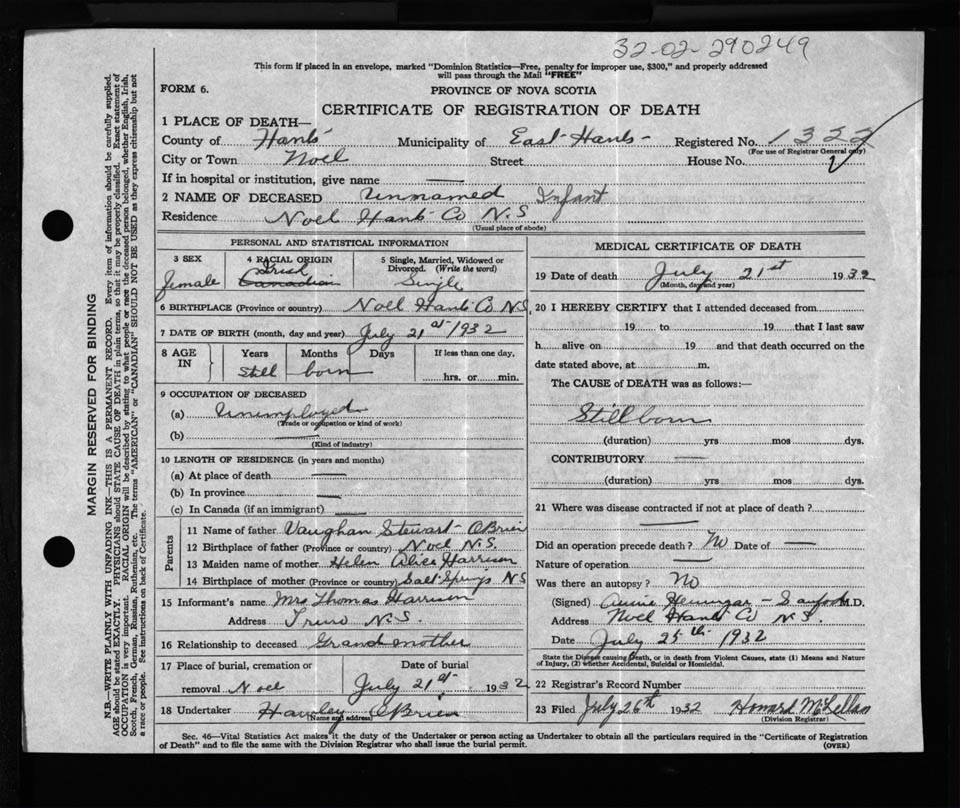 32-02-290249
This form if placed in an envelope, marked "Dominion Statistics—Free, penalty for improper use, $300," and properly addressed
will pass through the Mail "FREE"
FORM 6.
PROVINCE OF NOVA SCOTIA
CERTIFICATE OF REGISTRATION OF DEATH
1 PLACE OF DEATH—
County of Hants Municipality of East Hants Registered No. 1322
(For use of Registrar General only)
City or Town Noel Street House No.
If in hospital or institution, give name —
2 NAME OF DECEASED Unnamed Infant
Residence Noel Hants Co N.S.
(Usual place of abode)
PERSONAL AND STATISTICAL INFORMATION
3 SEX 4 RACIAL ORIGIN 5 Single, Married, Widowed or Divorced. (Write the word)
female Irish Canadian Single
6 BIRTHPLACE (Province or country) Noel Hants Co N.S.
7 DATE OF BIRTH (month, day and year) July 21st 1932
8 AGE IN Years Months Days If less than one day,
Still born hrs. or min.
9 OCCUPATION OF DECEASED
(a) Unemployed
(Trade or occupation or kind of work)
(b) —
(Kind of industry)
10 LENGTH OF RESIDENCE (in years and months)
(a) At place of death —
(b) In province —
(c) In Canada (if an immigrant) —
Parents
11 Name of father Vaughan Stewart O'Brien
12 Birthplace of father (Province or country) Noel N.S.
13 Maiden name of mother Helen Alice Harrison
14 Birthplace of mother (Province or country) Salt Springs N S
15 Informant's name Mrs Thomas Harrison
Address Truro N.S.
16 Relationship to deceased Grandmother
17 Place of burial, cremation or removal Noel Date of burial July 21st 1932
18 Undertaker Hawley O'Brien
(Name and address)
MEDICAL CERTIFICATE OF DEATH
19 Date of death July 21st 1932
(Month, day and year)
20 I HEREBY CERTIFY that I attended deceased from
19 to 19 that I last saw
h alive on 19 and that death occurred on the
date stated above, at m.
The CAUSE of DEATH was as follows:—
Still born
(duration) yrs mos dys.
CONTRIBUTORY —
(duration) yrs mos dys.
21 Where was disease contracted if not at place of death?
—
Did an operation precede death? No Date of —
Nature of operation —
Was there an autopsy? No
(Signed) Annie M.D.
Address Noel Hants Co N.S.
Date July 25th 1932
State the Disease causing Death, or in death from Violent Causes, state (1) Means and Nature
of Injury, (2) whether Accidental, Suicidal or Homicidal.
22 Registrar's Record Number
23 Filed July 26th 1932 Howard McLellan
(Division Registrar)
Sec. 46—Vital Statistics Act makes it the duty of the Undertaker or person acting as Undertaker to obtain all the particulars required in the "Certificate of Registration
of Death" and to file the same with the Division Registrar who shall issue the burial permit. (OVER)
MARGIN RESERVED FOR BINDING
N.B.—WRITE PLAINLY WITH UNFADING INK—THIS IS A PERMANENT RECORD. Every item of information should be carefully supplied.
AGE should be stated EXACTLY. PHYSICIANS should STATE CAUSE OF DEATH in plain terms, so that it may be properly classified. Exact statement of
OCCUPATION is very important. RACIAL ORIGIN will be described by stating to what people or race the deceased person belonged, whether English, Irish,
Scotch, French, German, Russian, Ruthenian, etc. The terms "AMERICAN" or "CANADIAN" SHOULD NOT BE USED as they express citizenship but not
a race or people. See instructions on back of Certificate.